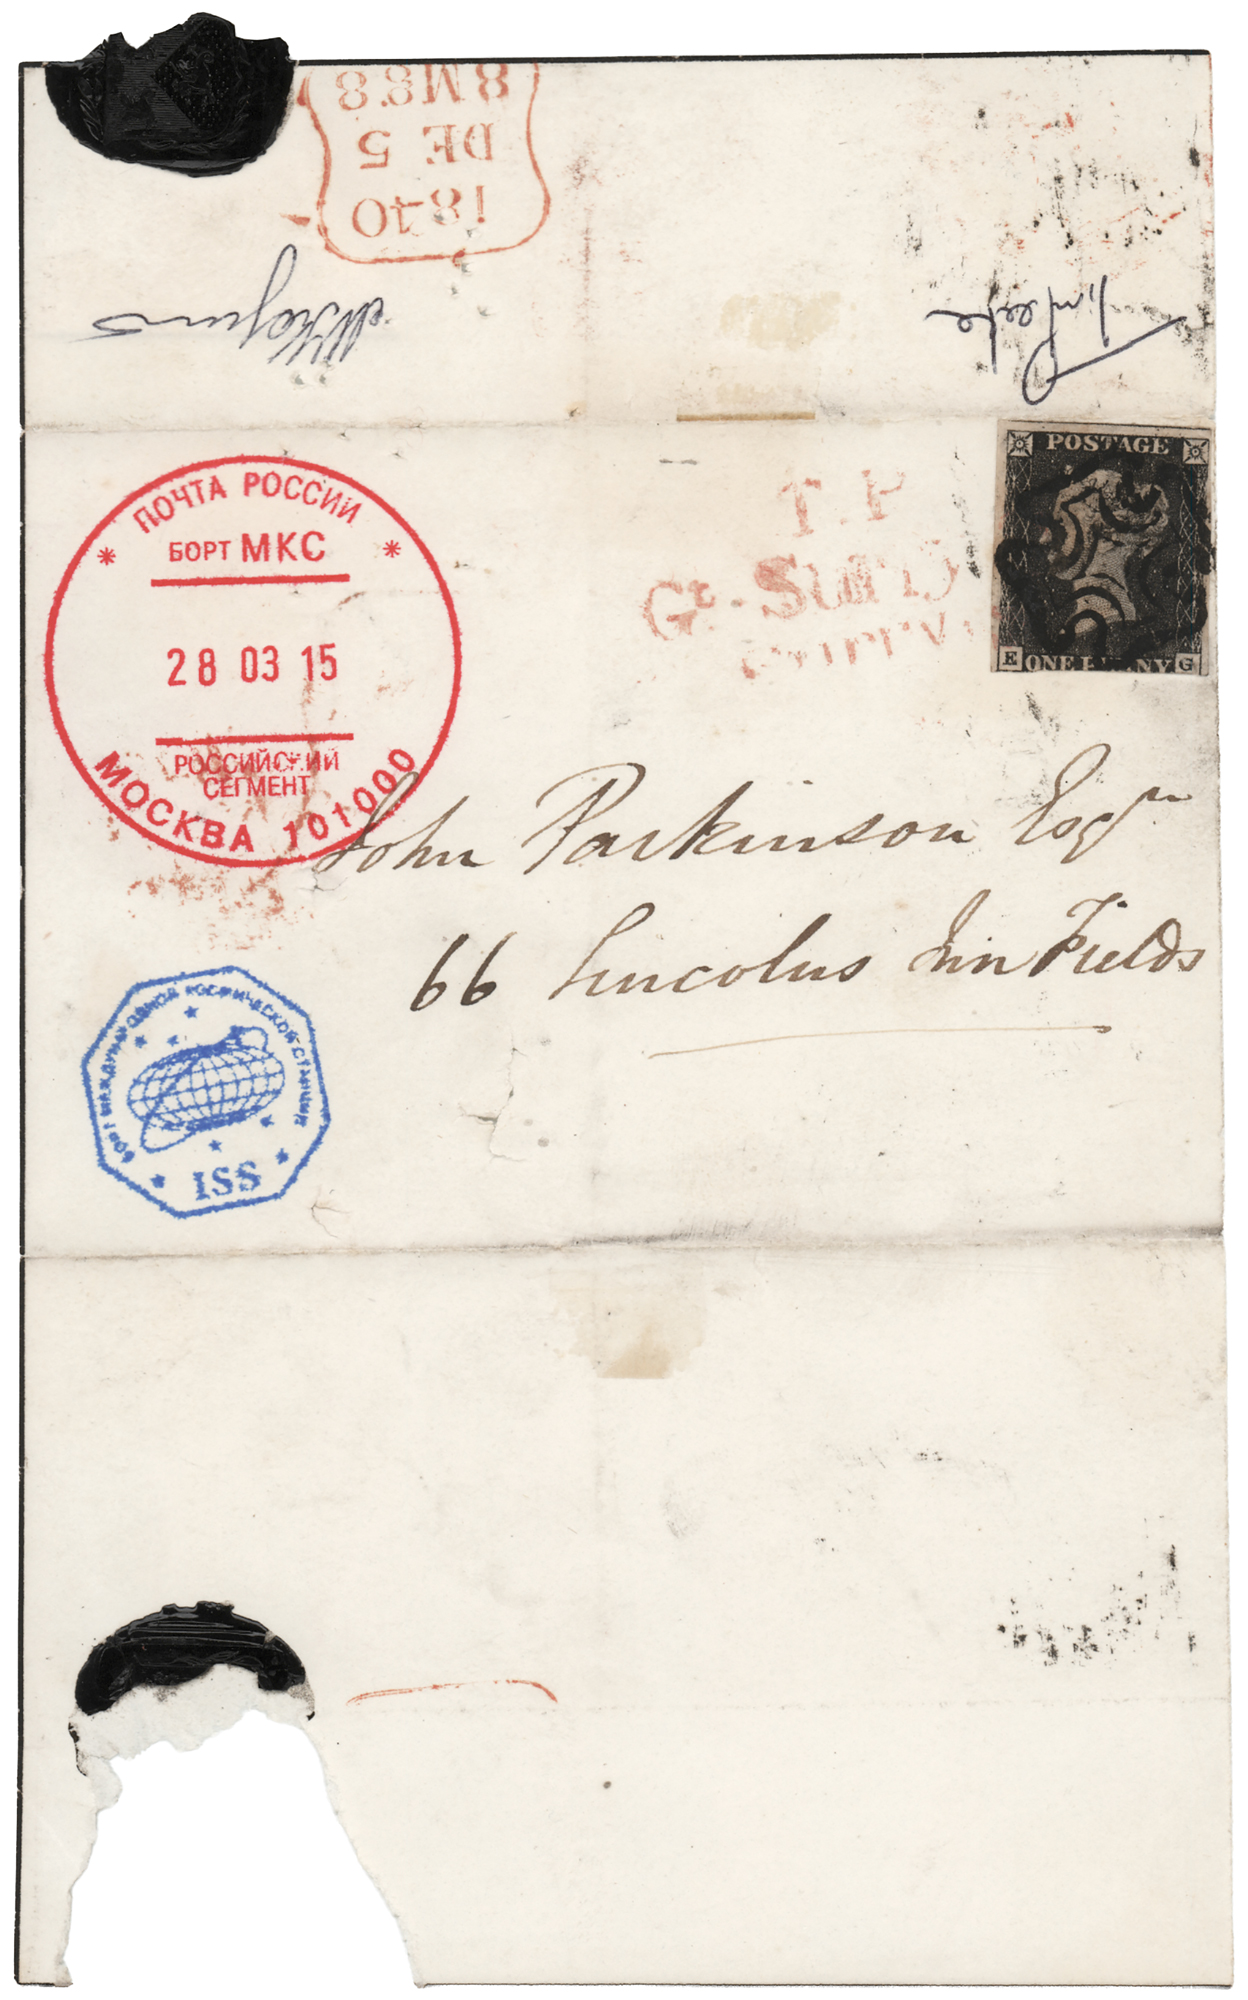 8 MG 8
DE 5
1840
Tim Peake
ПОЧТА РОССИИ
БОРТ МКС
28 03 15
РОССИЙСКИЙ
СЕГМЕНТ
МОСКВА 101000
T.P
Gt. Surry
POSTAGE
E ONE PENNY G
John Parkinson Esqr
66 Lincolns Inn Fields
БОРТ МЕЖДУНАРОДНОЙ КОСМИЧЕСКОЙ СТАНЦИИ
ISS